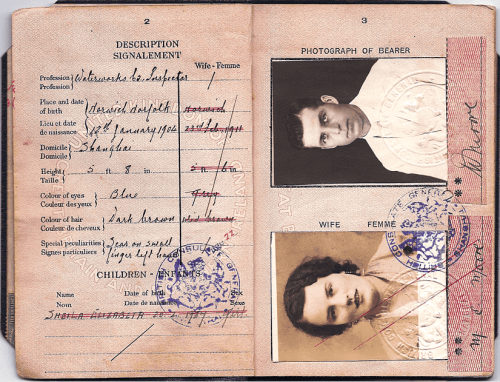 2
DESCRIPTION
SIGNALEMENT
Wife - Femme
Profession } Waterworks Co. Inspector
Profession }
Place and date
of birth } Norwich Norfolk Norwich
Lieu et date
de naissance } 18th January 1904 23rd Feb. 1911
Domicile } Shanghai
Domicile }
Height } 5 ft 8 in 5 ft 6 in
Taille }
Colour of eyes } Blue Grey
Couleur des yeux }
Colour of hair } Dark brown brown
Couleur de cheveux }
Special peculiarities } Scar on small
Signes particuliers } finger left hand
CHILDREN - ENFANTS
Name Date of birth Sex
Nom Date de naissance Sexe
SHEILA ELIZABETH 1937
3
PHOTOGRAPH OF BEARER
WIFE FEMME
CONSULATE GENERAL